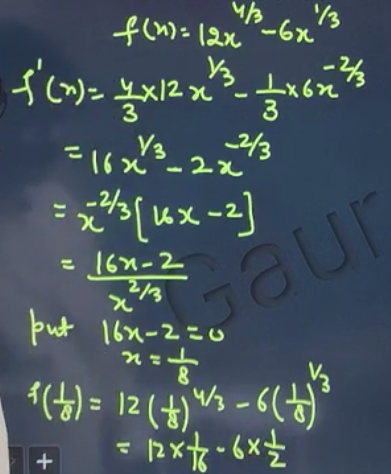 f(x) = 12x^{4/3} - 6x^{1/3}
f'(x) = 4/3 × 12x^{1/3} - 1/3 × 6x^{-2/3}
= 16x^{1/3} - 2x^{-2/3}
= x^{-2/3} [16x - 2]
= \frac{16x - 2}{x^{2/3}}
put 16x - 2 = 0
x = 1/8
f(1/8) = 12(1/8)^{4/3} - 6(1/8)^{1/3}
= 12 × 1/16 - 6 × 1/2
Gaur
+